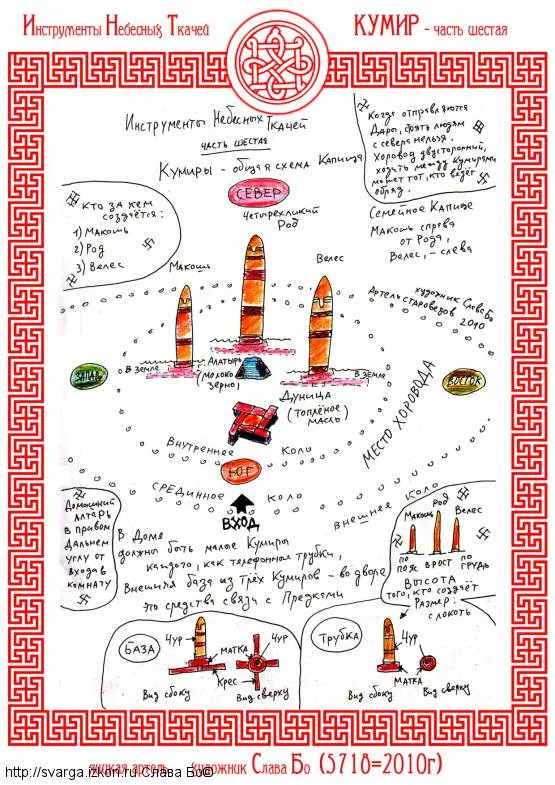 Инструменты Небесных Ткачей
КУМИР - часть шестая
Инструменты Небесных Ткачей
часть шестая
Кумиры - общая схема Капища
Когда отправляются
Дары, брать людям
с севера нельзя.
Хоровод двусторонний,
ходить между Кумирами
может тот, кто ведёт
обряд.
Кто за кем
создаётся:
1) Макошь
2) Род
3) Велес
СЕВЕР
Четырёхликий
Род
Семейное Капище
Макошь справа
от Рода,
Велес, - слева
Макошь
Велес
художник Слава Бо
Артель староверов
2010
В земле
Алатырь
(молоко
зерно)
В земле
ЗАПАД
ВОСТОК
Дуница
(топлёное
масло)
МЕСТО ХОРОВОДА
Внутреннее коло
ЮГ
Срединное коло
Внешнее коло
ВХОД
Домашний
Алтарь
в правом
Дальнем
углу от
входа в
комнату
В Доме
должны быть малые Кумиры
каждого, как телефонные трубки,
Внешняя база из трёх Кумиров - во дворе
Это средства связи с Предками
Макошь Род Велес
по пояс
в рост
по грудь
Высота
того, кто создаёт
Размер:
с локоть
База
Чур
матка
Чур
Крес
Вид сбоку
Вид сверху
Трубка
Чур
Матка
Вид сбоку
Вид сверху
http://svarga.izkon.ru Слава Бо©
художник Слава Бо (5718=2010г)